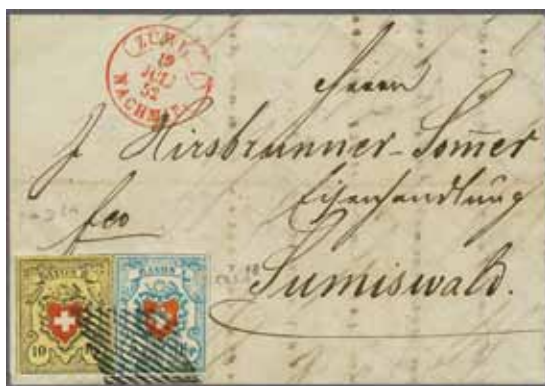 ZÜRICH
19
JULI
52
NACHMIT.
Herrn
J Hirsbrunner-Som̄er
Eisenhandlung
fco
Sumiswald.
RAYON II.
10
RAYON I.